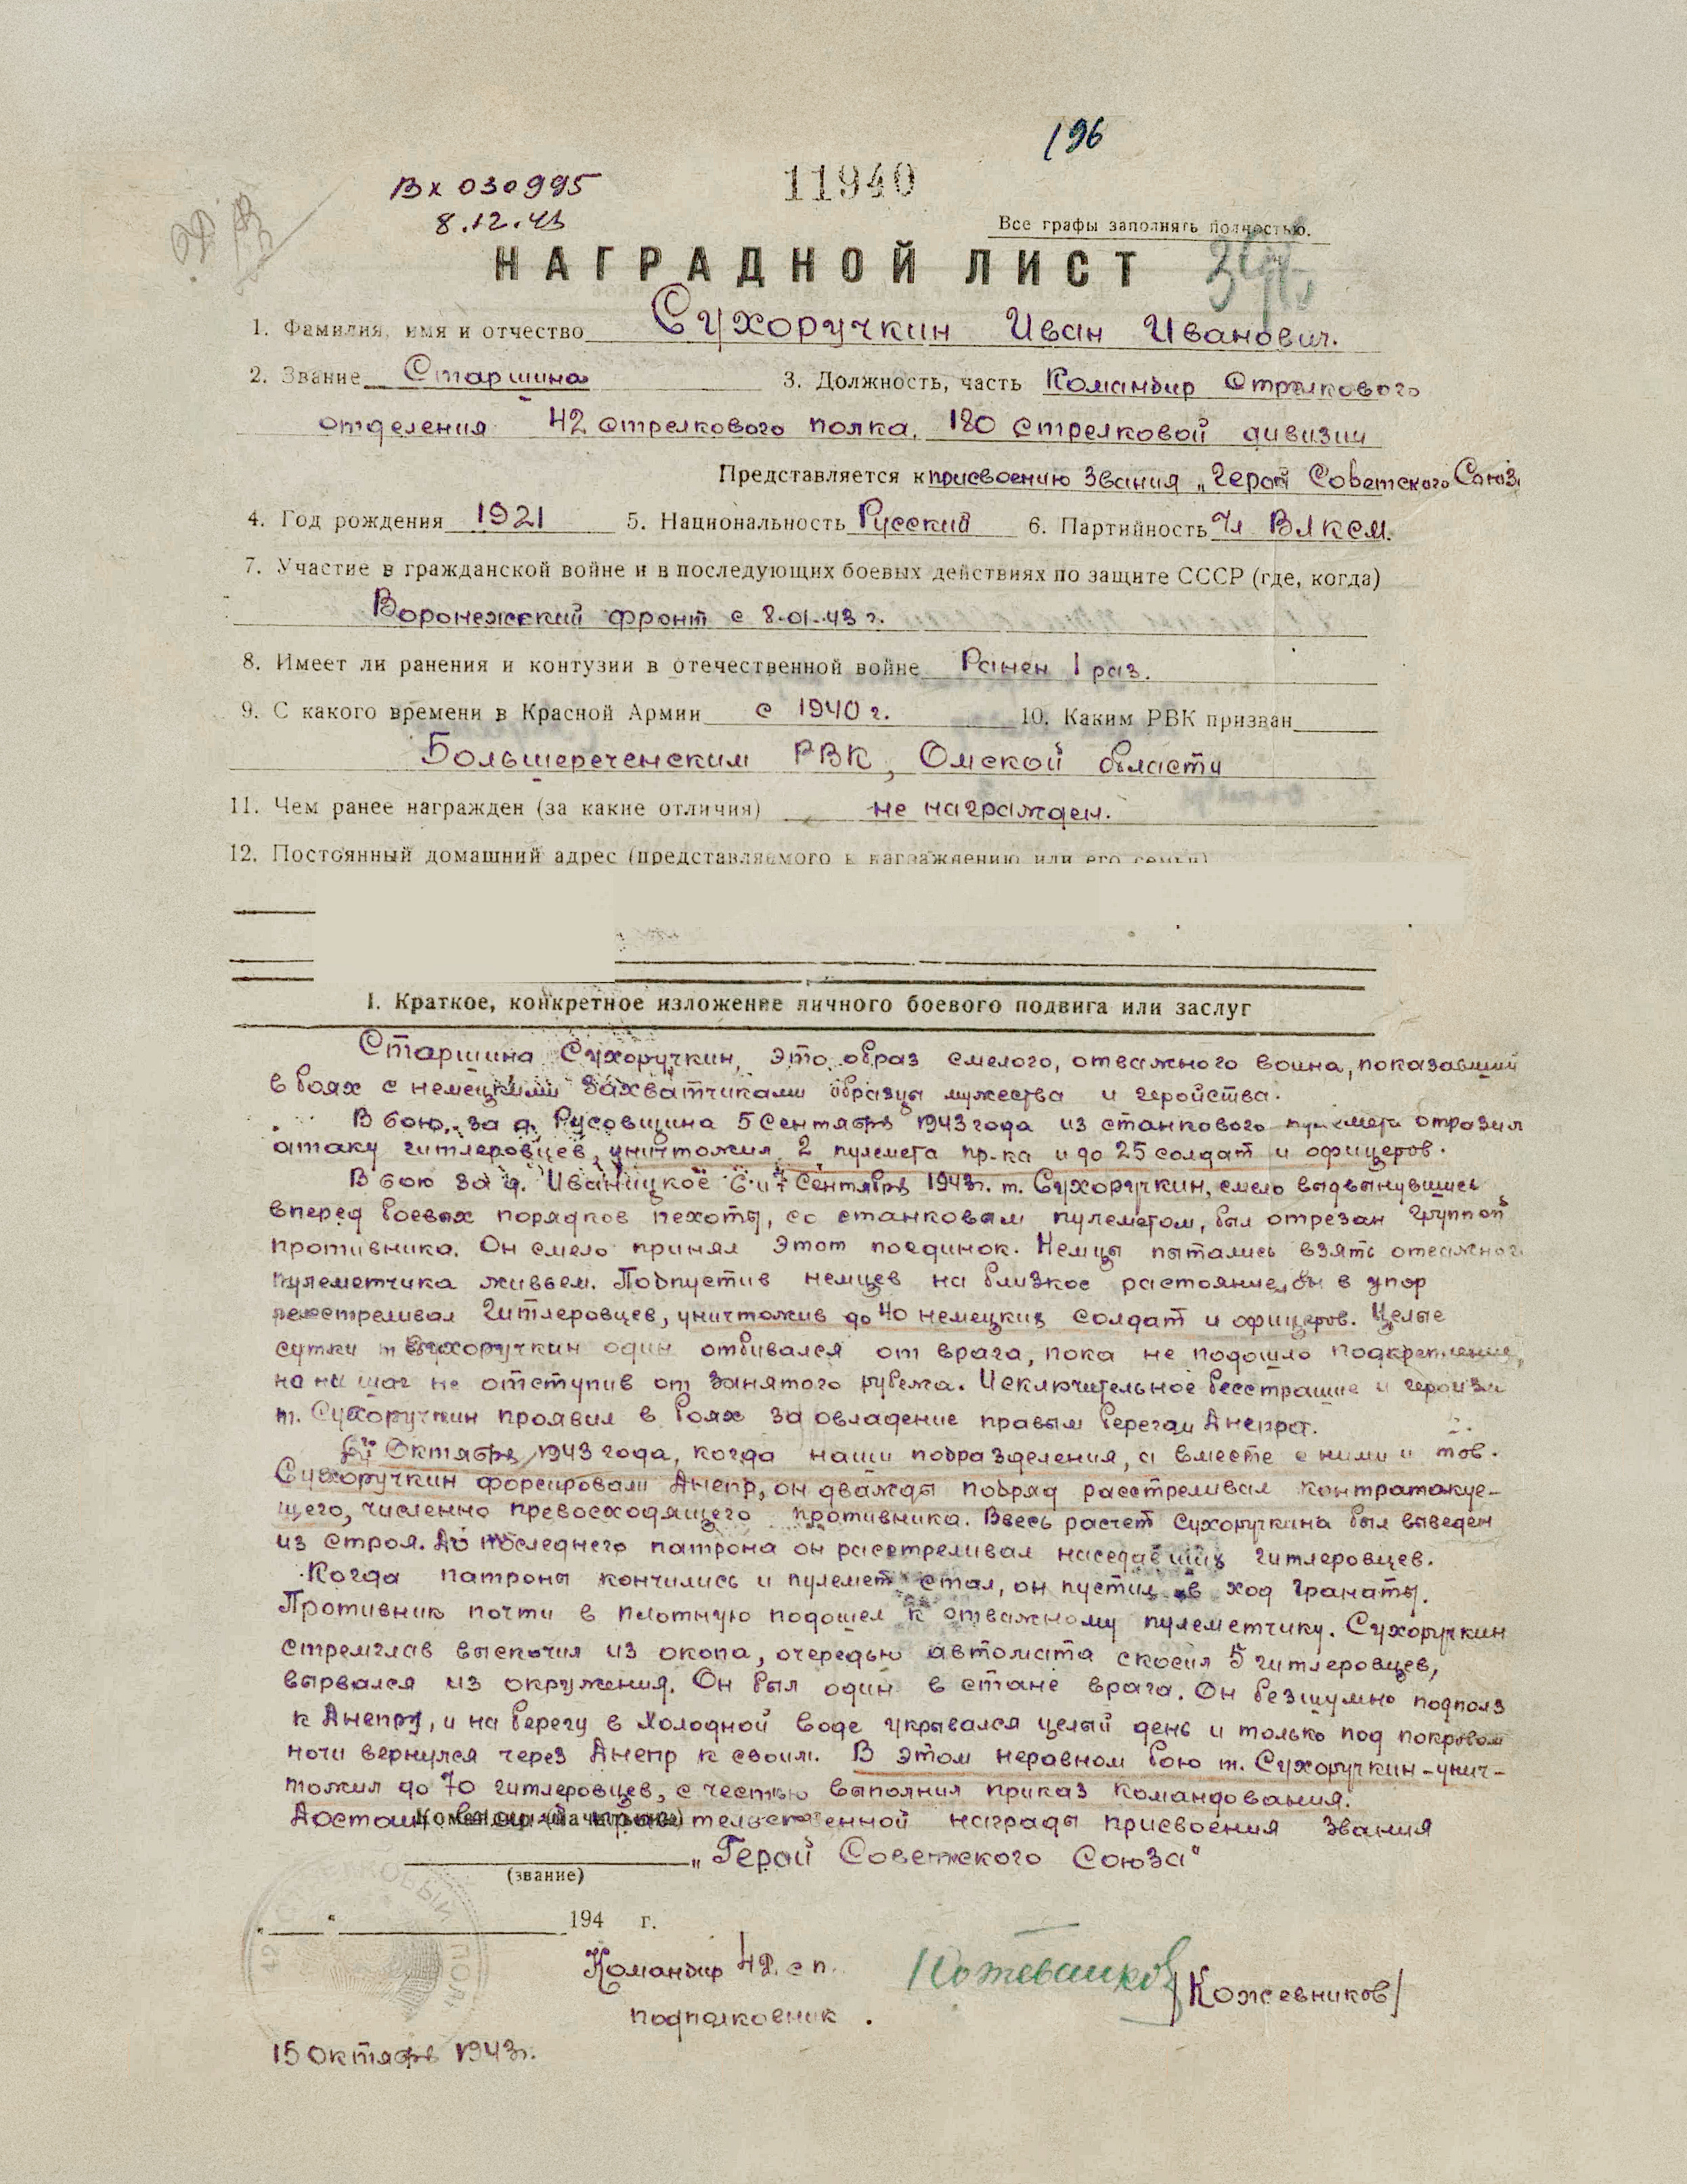 196
Вх 030995
11940
8.12.43
Все графы заполнять полностью.
НАГРАДНОЙ ЛИСТ
1. Фамилия, имя и отчество Сухоручкин Иван Иванович.
2. Звание Старшина 3. Должность, часть Командир Стрелкового
отделения 42 стрелкового полка, 180 стрелковой дивизии
Представляется к присвоению Звания „Герой Советского Союз
4. Год рождения 1921 5. Национальность Русский 6. Партийность Чл ВЛКСМ.
7. Участие в гражданской войне и в последующих боевых действиях по защите СССР (где, когда)
Воронежский фронт с 8.01.43 г.
8. Имеет ли ранения и контузии в отечественной войне Ранен 1 раз.
9. С какого времени в Красной Армии с 1940 г. 10. Каким РВК призван
Большереченским РВК, Омской области
11. Чем ранее награжден (за какие отличия) не награжден.
12. Постоянный домашний адрес (представляемого к награждению или его семьи)
I. Краткое, конкретное изложение личного боевого подвига или заслуг
Старшина Сухоручкин, это образ смелого, отважного воина, показавший
в боях с немецкими захватчиками образцы мужества и геройства.
В бою за д. Русовщина 5 Сентября 1943 года из станкового пулемета отразил
атаку гитлеровцев, уничтожил 2 пулемета пр-ка и до 25 солдат и офицеров.
В бою за д. Иваницкое 6 и 7 Сентября 1943г. т. Сухоручкин, смело выдвинувшись
вперед боевых порядков пехоты, со станковым пулеметом, был отрезан группой
противника. Он смело принял этот поединок. Немцы пытались взять отважного
пулеметчика живьем. Подпустив немцев на близкое растояние, он в упор
расстреливал Гитлеровцев, уничтожив до 40 немецких солдат и офицеров. Целые
сутки т Сухоручкин один отбивался от врага, пока не подошло подкрепление,
но ни шаг не отступив от занятого рубежа. Исключительное бесстрашие и героизм
т. Сухоручкин проявил в боях за овладение правым берегом Днепра.
Октября 1943 года, когда наши подразделения, а вместе с ними и тов.
Сухоручкин форсировали Днепр, он дважды подряд расстреливал контратакуе-
щего, численно превосходящего противника. Ввесь расчет Сухоручкина был выведен
из строя. До последнего патрона он расстреливал наседавших гитлеровцев.
Когда патроны кончились и пулемет стал, он пустил в ход гранаты.
Противник почти в плотную подошел к отважному пулеметчику. Сухоручкин
стремглав выскочил из окопа, очередью автомата скосил 5 гитлеровцев,
вырвался из окружения. Он был один в стане врага. Он безшумно подполз
к Днепру, и на берегу в холодной воде укрывался целый день и только под покровом
ночи вернулся через Днепр к своим. В этом неравном бою т. Сухоручкин-унич-
тожил до 70 гитлеровцев, с честью выполнил приказ командования.
Достоин Командир (начальник) тельственной награды присвоения звания
„Герой Советского Союза"
(звание)
„ " 194 г.
42 СТРЕЛКОВЫЙ ПОЛК
Командир 42 сп.
подполковник. Кожевников /Кожевников/
15 Октября 1943г.